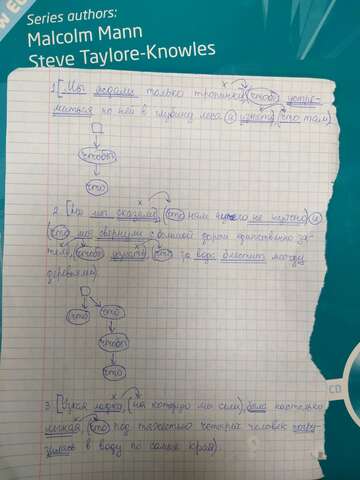 Series authors:
Malcolm Mann
Steve Taylore-Knowles
1. [Мы ждали только тропинки, (чтобы устре-
миться по ней в глубину леса и узнать), (что там)
чтобы
что
2. [Но мы сказали], (что нам ничего не нужно) и
(что мы свернули с большой дороги единственно за-
тем), (чтобы узнать), (что за вода блестит между
деревьями).
что что
чтобы
что
3. [Узкая лодка, (на которую мы сели), была настолько
легкая], (что под тяжестью которой человек погру-
зилась в воду по самые края).
CD